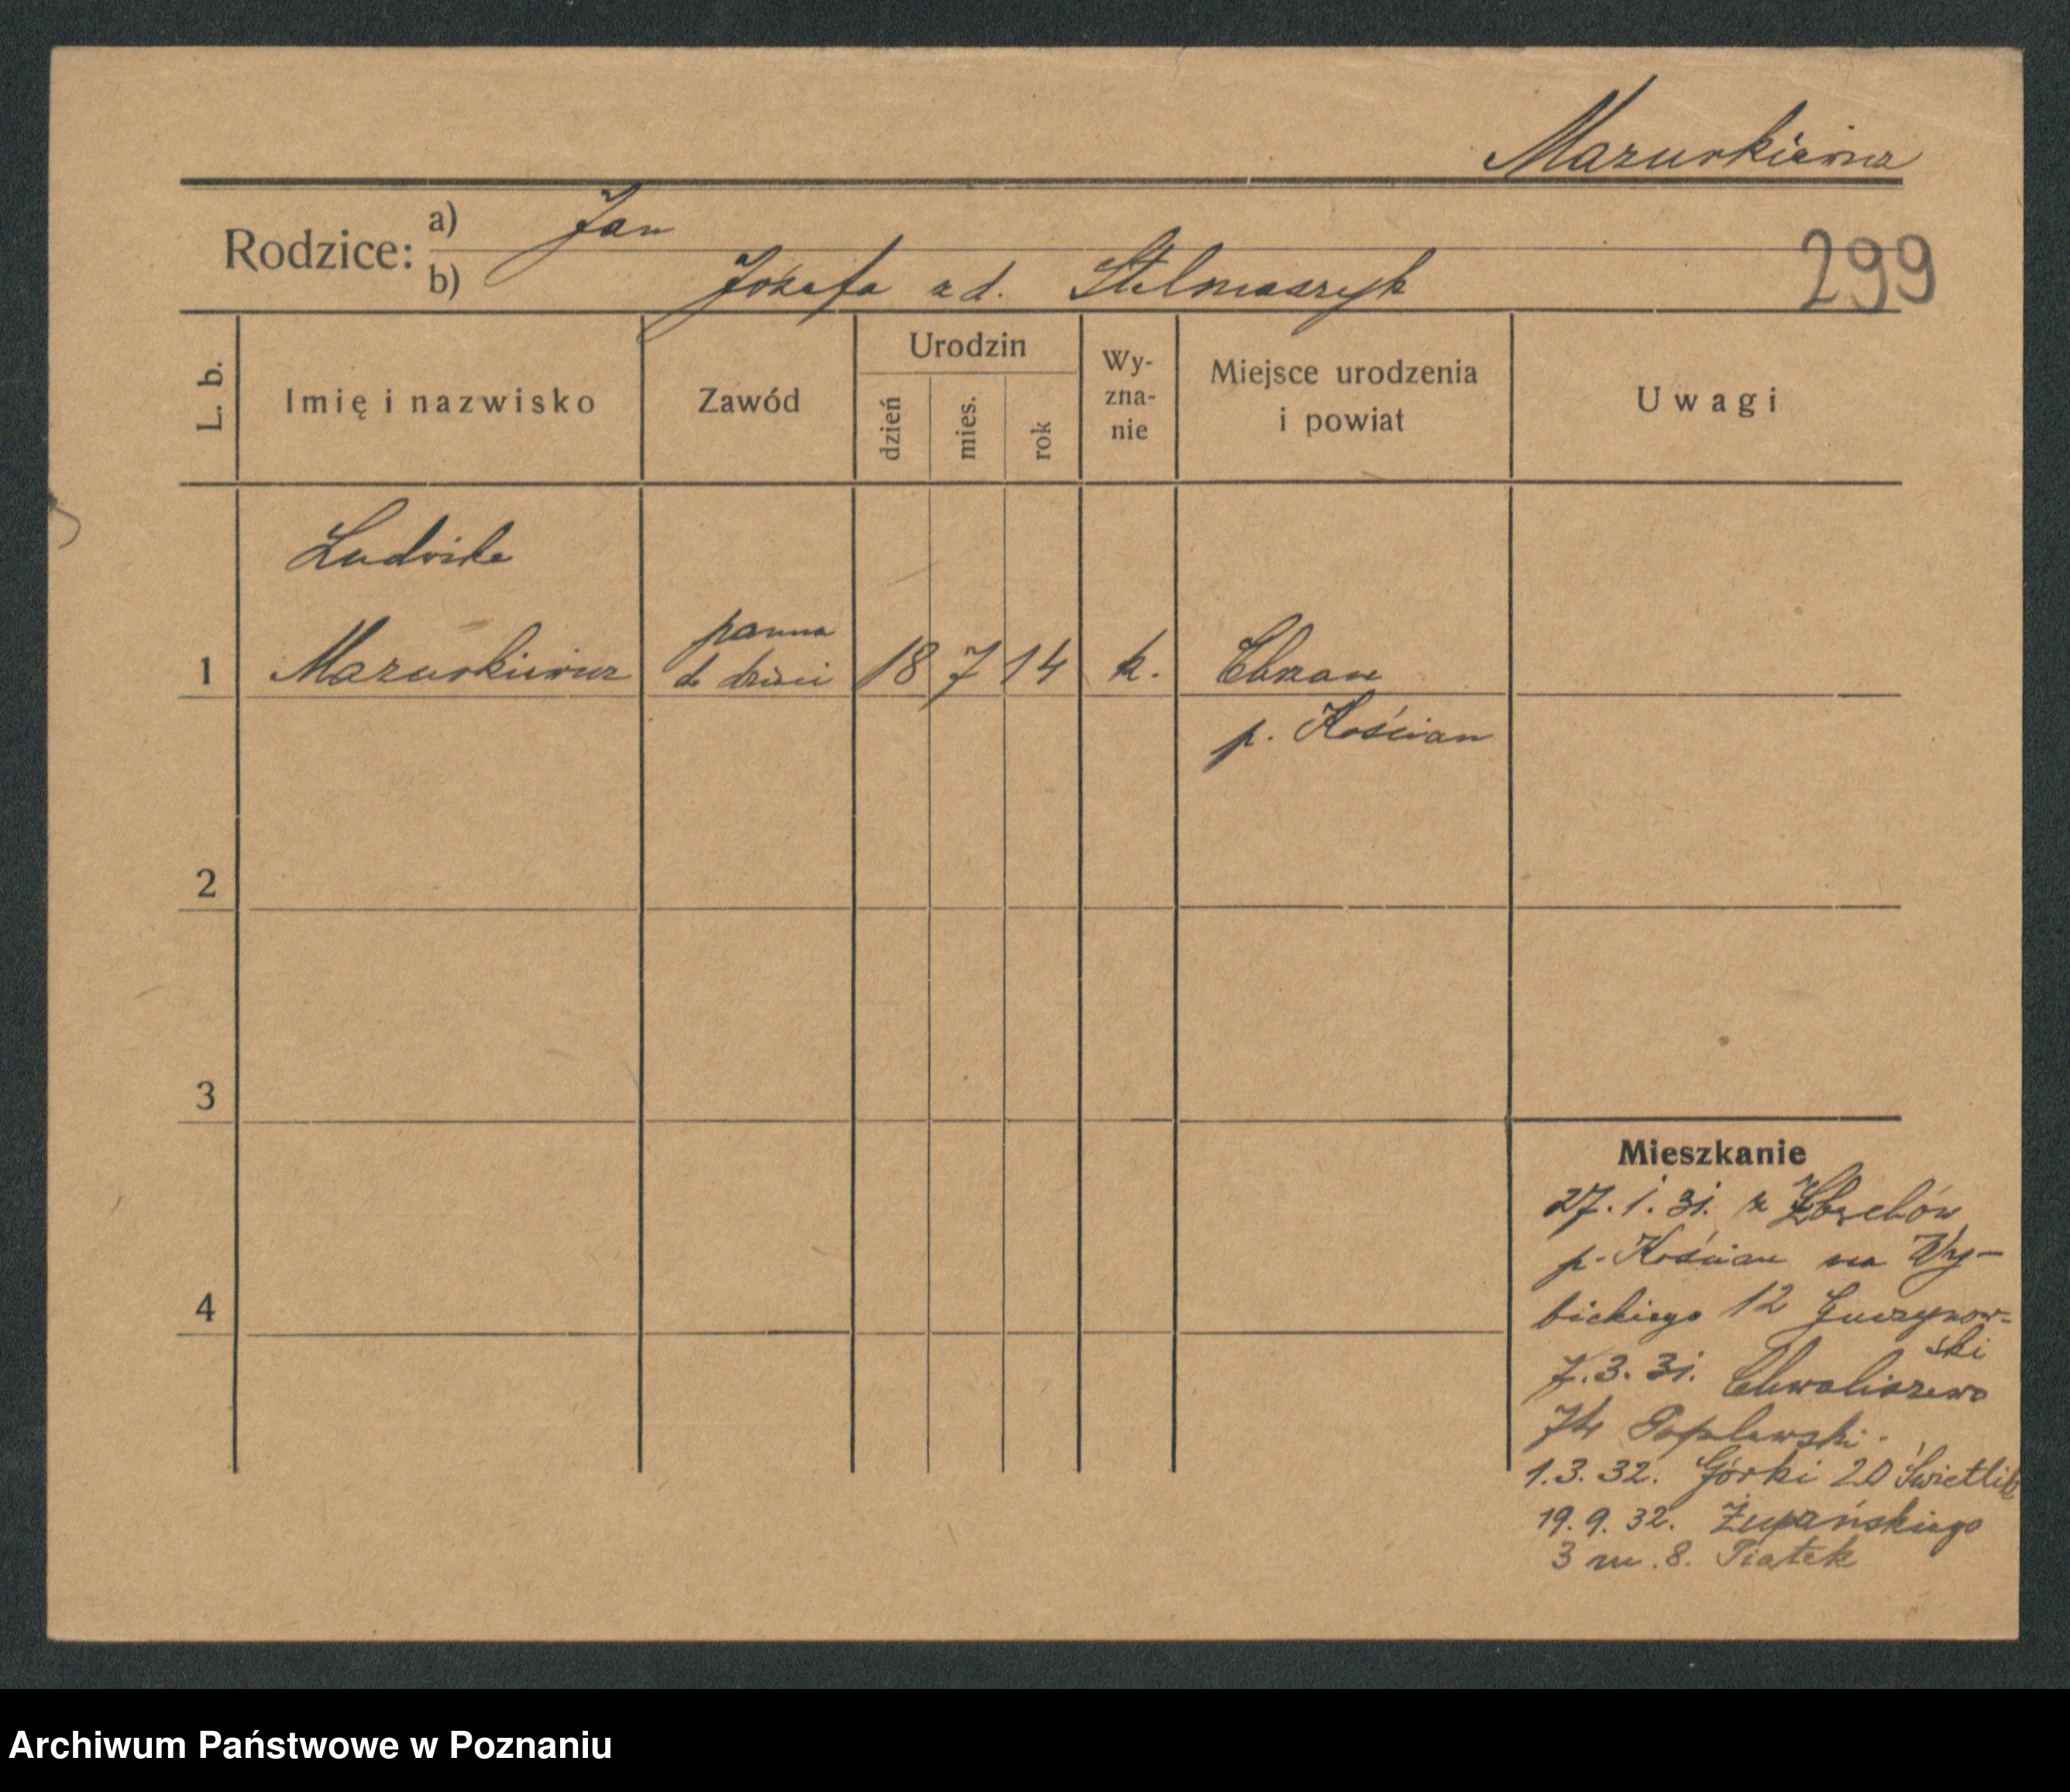 Mazurkiewicz
Rodzice: a) Jan
b) Józefa z d. Stelmaszyk
299
L. b.
Imię i nazwisko
Zawód
Urodzin
dzień
mies.
rok
Wy-
zna-
nie
Miejsce urodzenia
i powiat
Uwagi
Ludwika
panna
1 Mazurkiewicz do dzieci 18 7 14 k.
p. Kościan
2
3
4
Mieszkanie
27.1.31. z Zbęchów
p. Kościan na Wy-
bickiego 12
ski
7.3.31. Chwaliszewo
74 Poplewski.
1.3.32. Górki 20 Świetlik
19.9.32. Żupańskiego
3 m. 8. Piatek
Archiwum Państwowe w Poznaniu